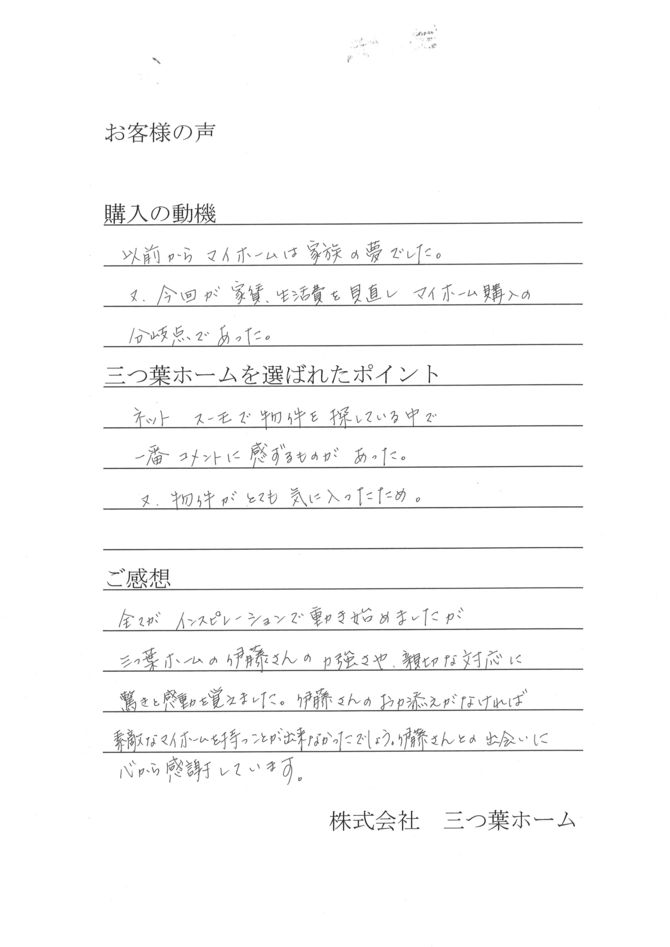 お客様の声
購入の動機
以前から マイホームは 家族の夢でした。
又、今回が 家賃、生活費を見直し マイホーム購入の
分岐点であった。
三つ葉ホームを選ばれたポイント
ネット スーモで物件を探している中で
一番 コメントに感ずるものが あった。
又、物件がとても 気に入ったため。
ご感想
全てが インスピレーションで動き始めましたが
三つ葉ホームの伊藤さんの力強さや、親切な対応に
驚きと感動を覚えました。伊藤さんのお力添えがなければ
素敵なマイホームを持つことが出来なかったでしょう。伊藤さんとの出会いに
心から感謝しています。
株式会社 三つ葉ホーム